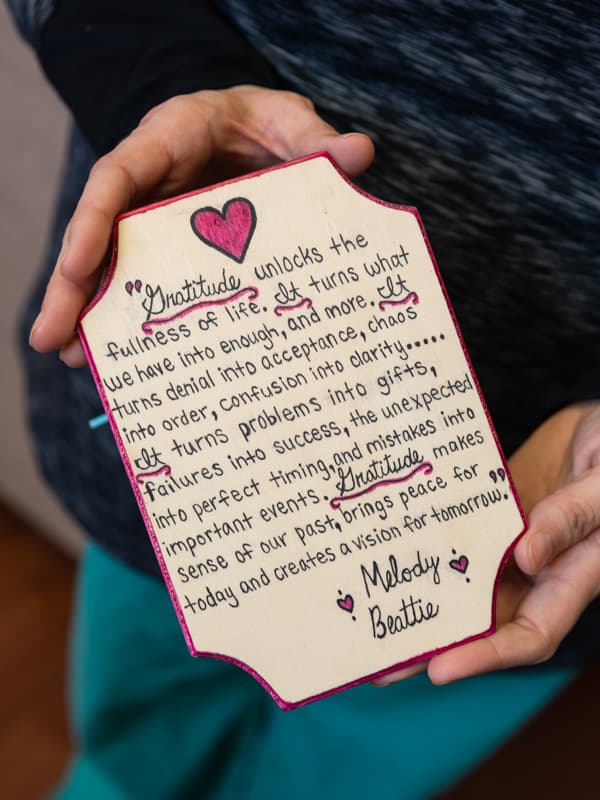 "Gratitude unlocks the
fullness of life. It turns what
we have into enough, and more. It
turns denial into acceptance, chaos
into order, confusion into clarity.....
It turns problems into gifts,
failures into success, the unexpected
into perfect timing, and mistakes into
important events. Gratitude makes
sense of our past, brings peace for
today and creates a vision for tomorrow."
Melody
Beattie